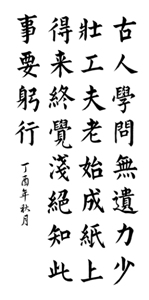 古人學問無遺力少
壯工夫老始成紙上
得来終覺淺絕知此
事要躬行
丁酉年秋月